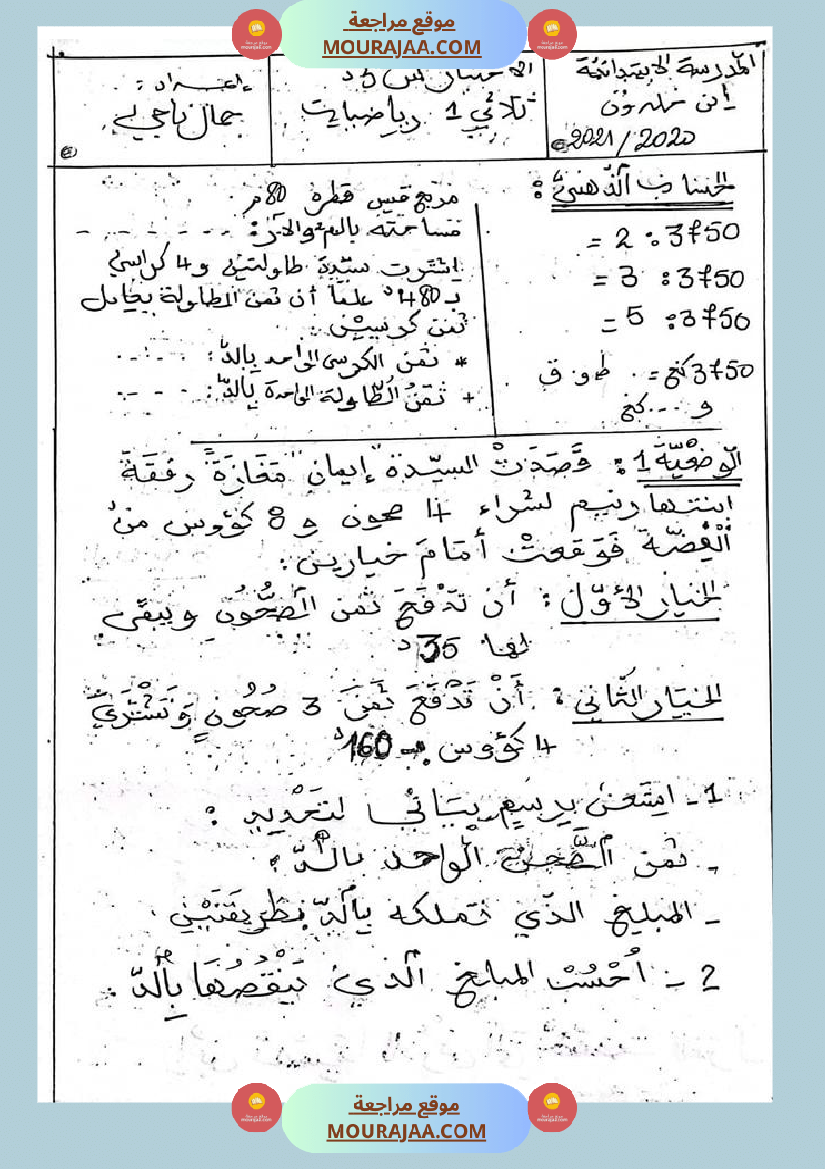 موقع مراجعة
MOURAJAA.COM
المدرسة الابتدائية
ابن خلدون
2021/2020
ثلاثي 1 رياضيات
إعداد:
جمال ناجي
الحساب الذهني:
3750 : 2 =
3750 : 3 =
3750 : 5 =
3750 كغ = . ط و ق
و ... كغ
مربع قيس قطره 80 م
مساحته بالم² و الآر:
اشترت سيّدة طاولتين و 4 كراسي
بـ 480د علما أن ثمن الطاولة يعادل
ثمن كرسيين.
* ثمن الكرسي الواحد بالدّ:
+ ثمن الطّاولة الواحدة بالدّ:
الوضعيّة 1: قَصَدَتْ السيّدة "إيمان" مَغَازَةً رفقَةَ
ابنتها رنيم لشراء 4 صحون و 8 كؤوس من
الْفِضّة فَوَقعتْ أمَامَ خيارين:
الخيار الأوّل: أن تَدْفَعَ ثمن الصُّحُون ويبقى
لها 35د
الخيار الثّاني: أَنْ تَدْفَعَ ثَمَنَ 3 صُحُونٍ وَتَشْتَرِيَ
4 كؤوس بـ 160د
1 - استعن برسم بياني لتَحْديد:
- ثمن الصَّحن الواحد بالدّ.
- المبلغ الذّي تملكه بالدّ بطريقَتَيْنِ.
2 - اُحْسُبْ المبلغ الّذي يَنْقُصُهَا بِالدّ.
موقع مراجعة
MOURAJAA.COM